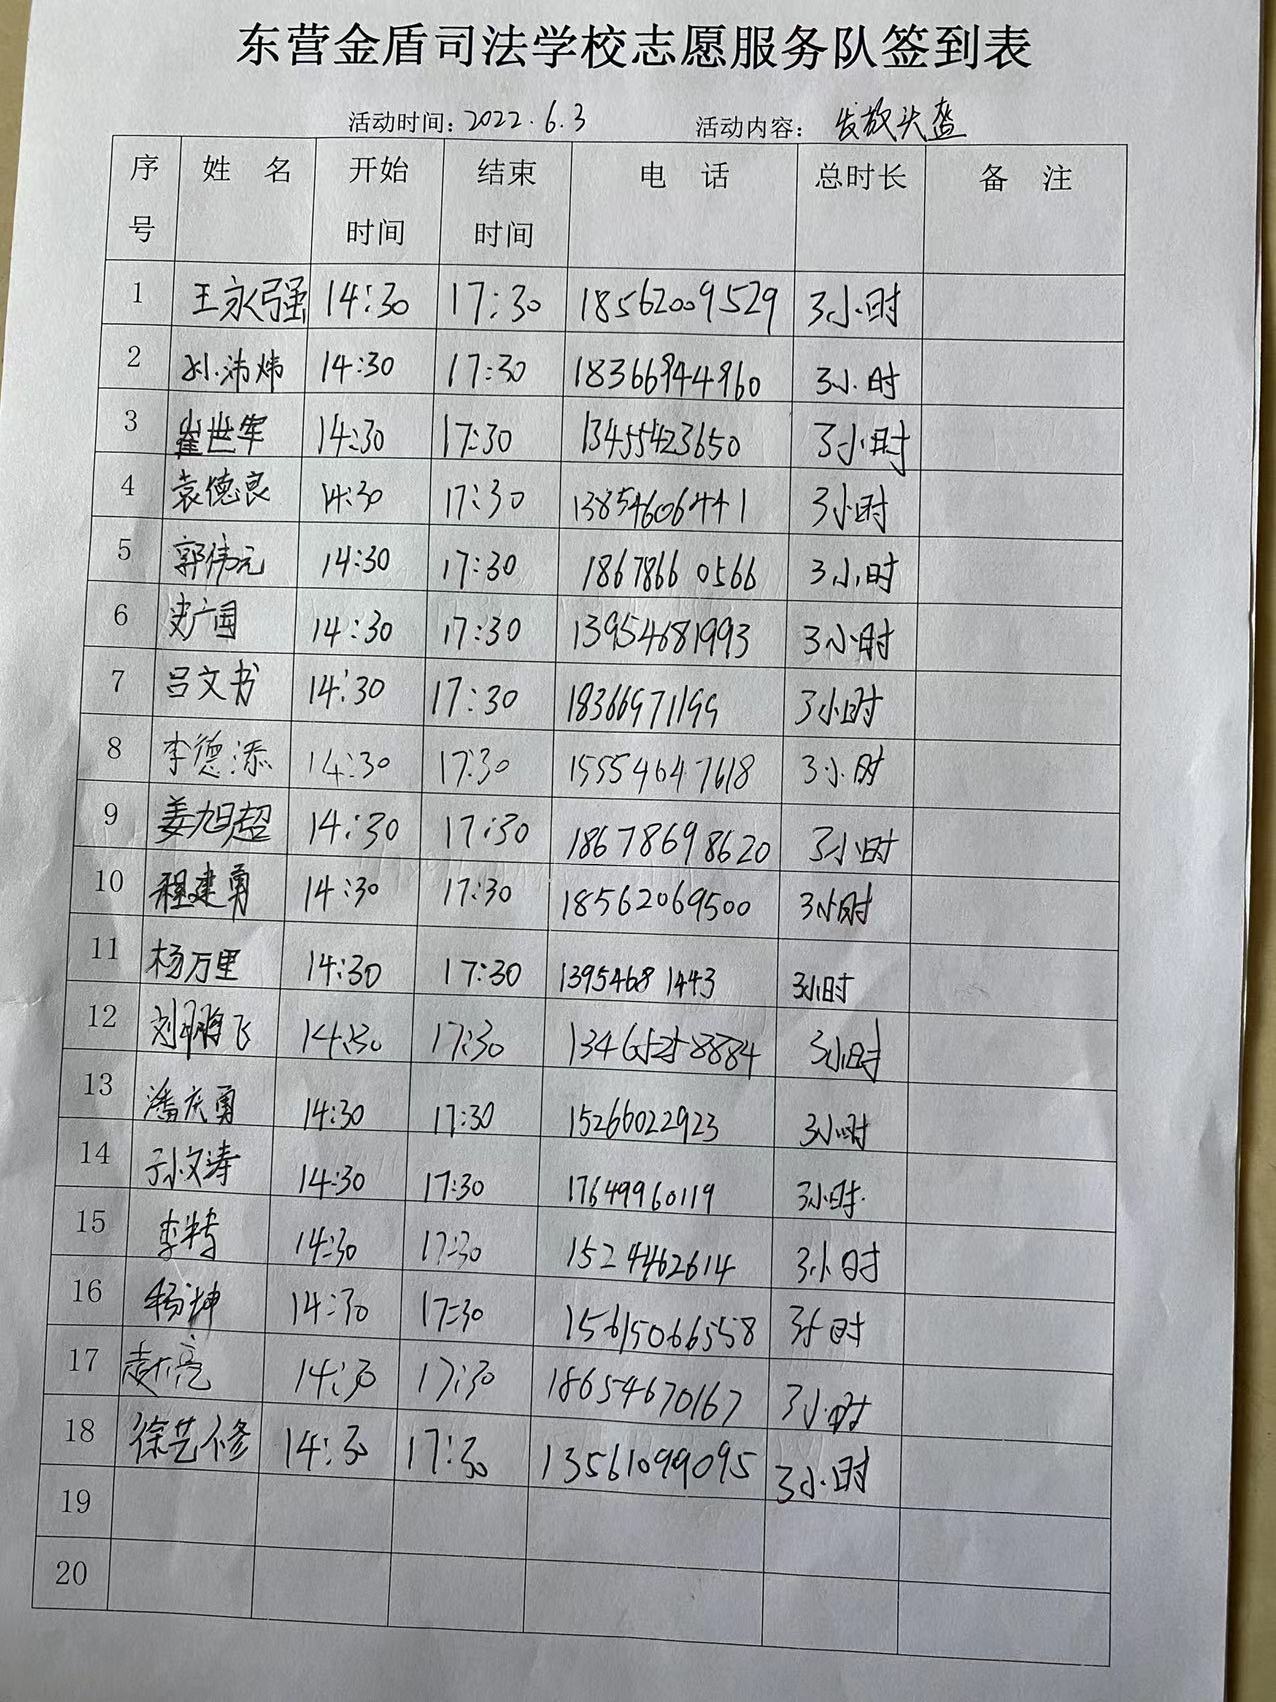 东营金盾司法学校志愿服务队签到表
活动时间：2022.6.3 活动内容：发放头盔
序号 姓 名 开始时间 结束时间 电 话 总时长 备 注
1 王永强 14:30 17:30 18562009529 3小时
2 孙沛炜 14:30 17:30 18366944960 3小时
3 崔世军 14:30 17:30 13455423650 3小时
4 袁德良 14:30 17:30 13854606441 3小时
5 郭伟元 14:30 17:30 18678660566 3小时
6 史广国 14:30 17:30 13954681993 3小时
7 吕文书 14:30 17:30 18366971199 3小时
8 李德添 14:30 17:30 15554647618 3小时
9 姜旭超 14:30 17:30 18678698620 3小时
10 程建勇 14:30 17:30 18562069500 3小时
11 杨万里 14:30 17:30 13954681443 3小时
12 刘鹏飞 14:30 17:30 13465258884 3小时
13 潘庆勇 14:30 17:30 15266022923 3小时
14 孙文涛 14:30 17:30 17649960119 3小时
15 李特 14:30 17:30 15244462614 3小时
16 杨坤 14:30 17:30 15615066558 3小时
17 赵亮 14:30 17:30 18654670167 3小时
18 徐艺修 14:30 17:30 13561099095 3小时
19
20